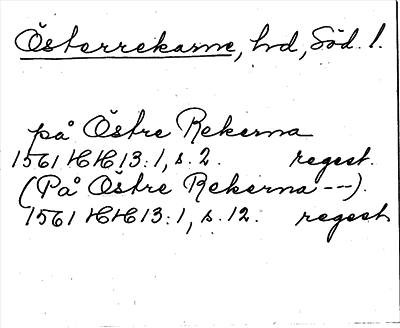 Österrekarne, hd, Söd. l.
på Östre Rekerna
1561 HH 13:1, s. 2. regest.
(På Östre Rekerna ---).
1561 HH 13:1, s. 12. regest